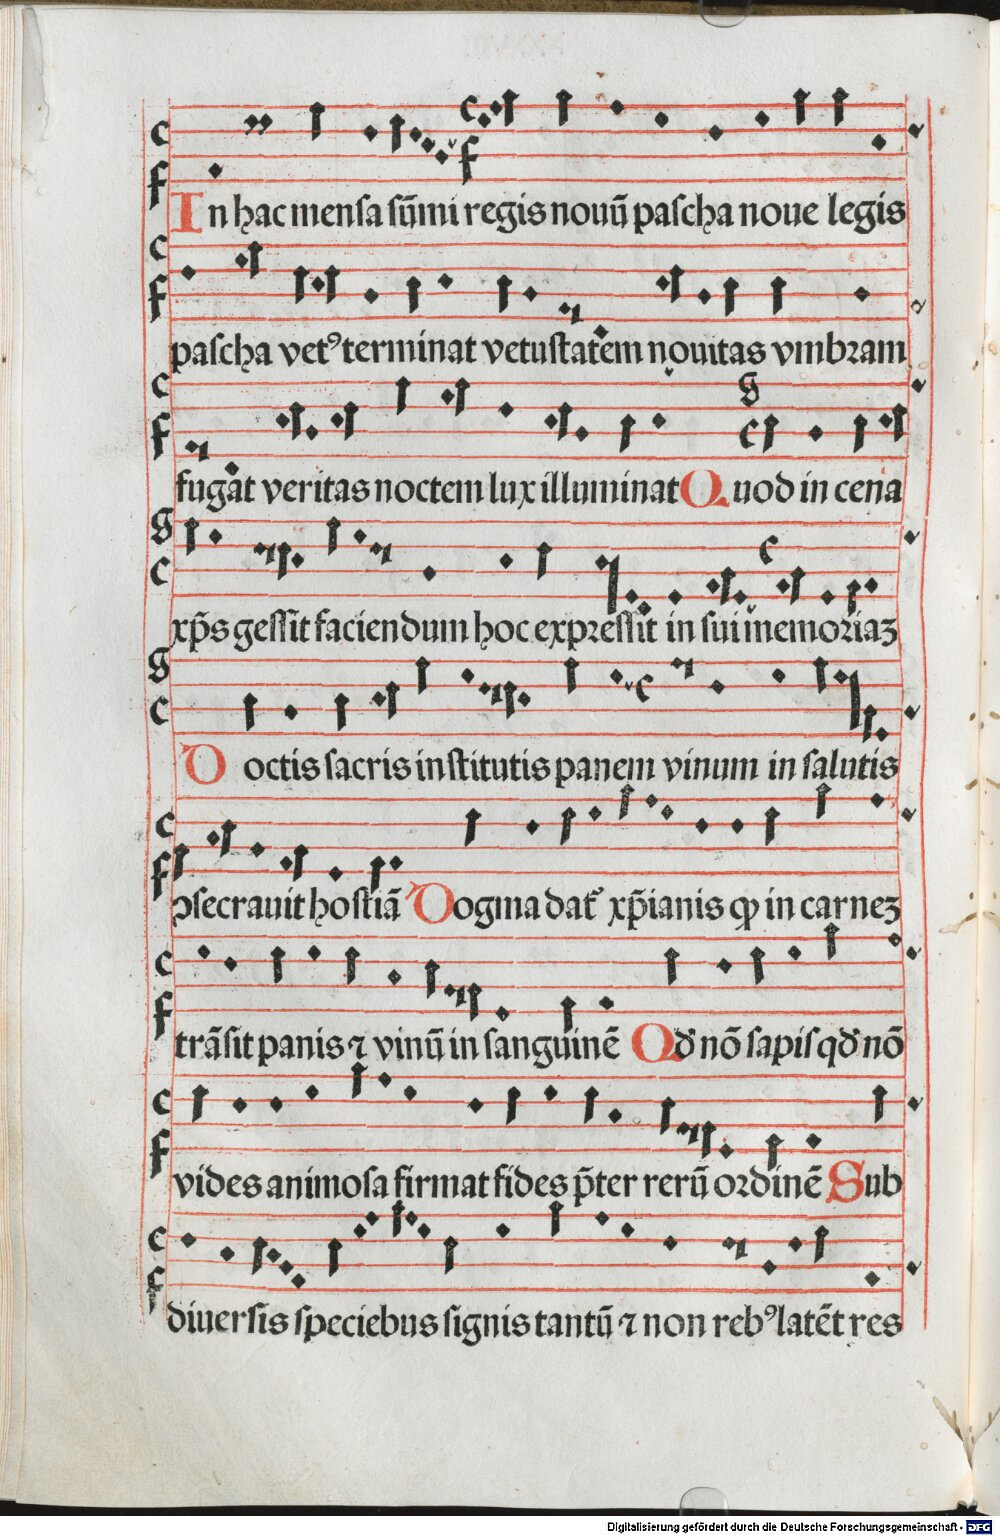 In hac mensa sūmi regis nouū pascha noue legis
pascha vetꝰ terminat vetustatem nouitas vmbram
fugat veritas noctem lux illuminat Quod in cena
xp̄s gessit faciendum hoc expressit in sui memoriaꝫ
Doctis sacris institutis panem vinum in salutis
ↄsecrauit hostiā Dogma dat᷑ xp̄ianis ꝙ in carneꝫ
trāsit panis ⁊ vinū in sanguinē Qđ nō sapis qđ nō
vides animosa firmat fides p̄ter rerū ordinē Sub
diuersis speciebus signis tantū ⁊ non rebꝰ latēt res
Digitalisierung gefördert durch die Deutsche Forschungsgemeinschaft - DFG